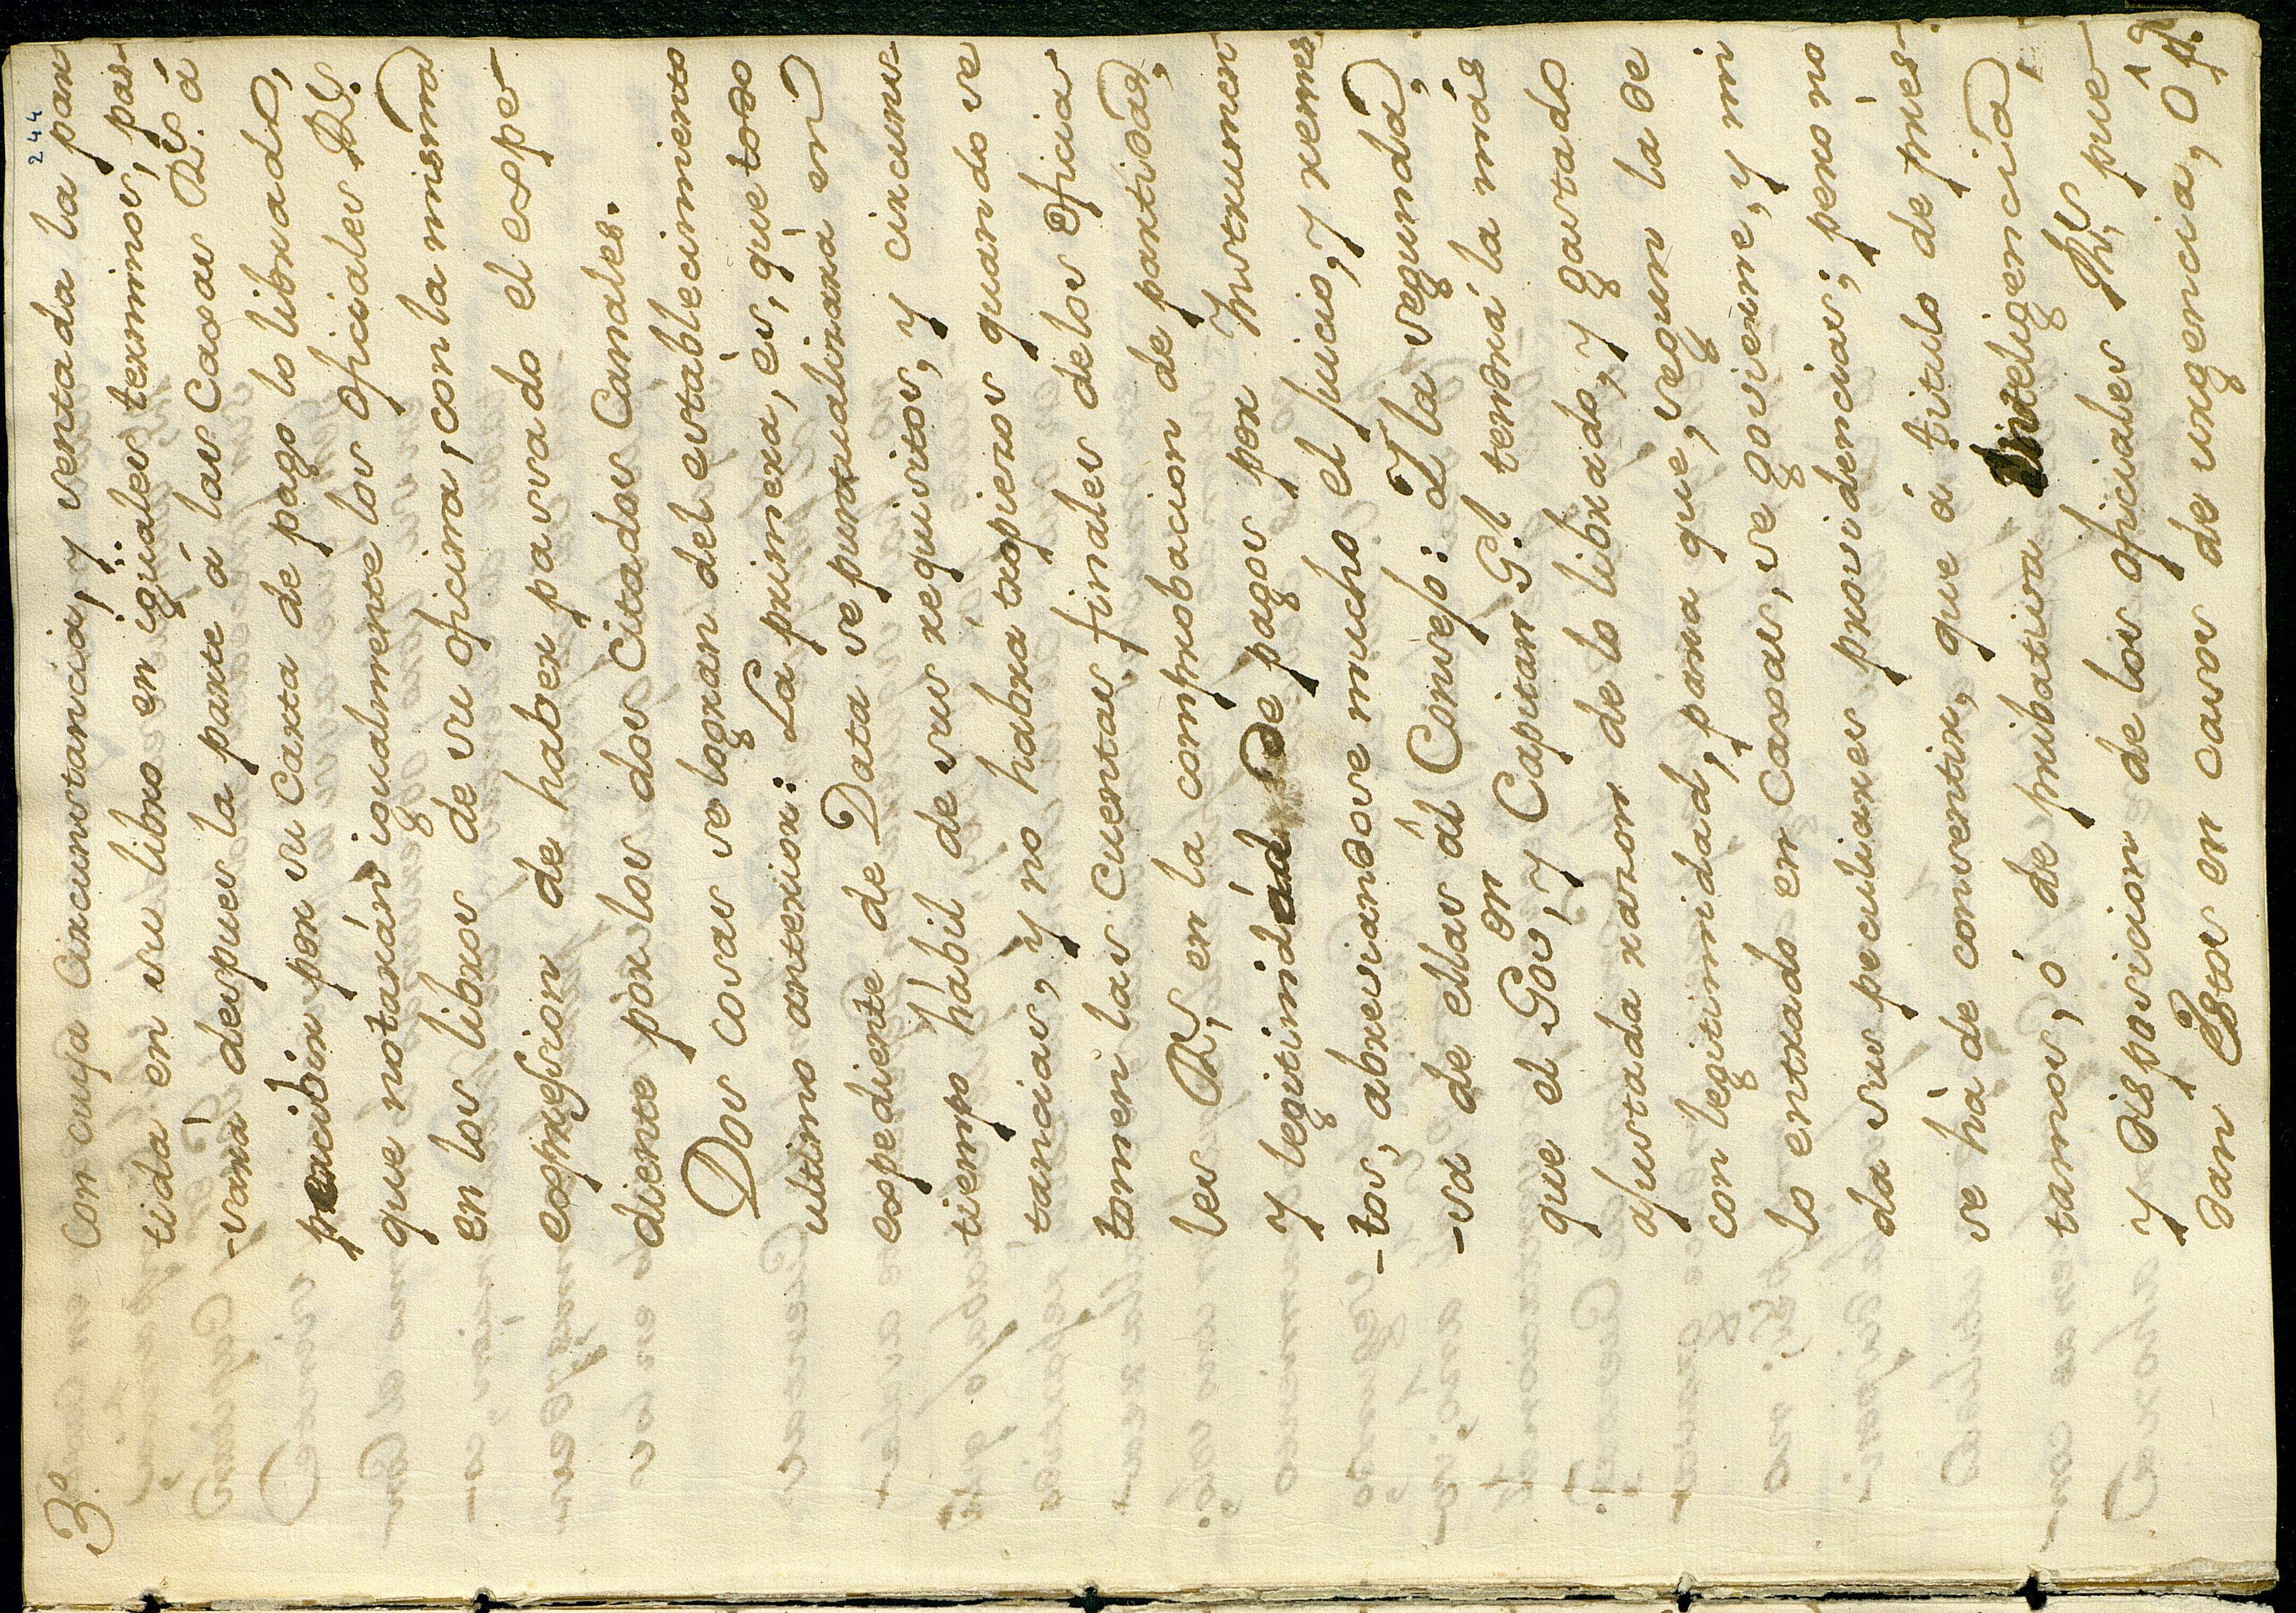 244
3.º
Con cuya circunstancia, y sentada la par
tida en su libro en iguales terminos, pas-
-sará despues la parte á las Caxas R.s á
percibir por su Carta de pago lo librado,
que notarán igualmente los oficiales R.s
en los libros de su oficina, con la misma
expresion de haber passado el espe-
diente por los dos Citados Canales.
Dos cosas se logran del establecimiento
ultimo anterior: La primera, es, que todo
expediente de Data se puntualizará en
tiempo hábil de sus requisitos, y circuns-
tancias, y no habra tropiezos quando se
tomen las Cuentas finales de los Oficia-
les R.s, en la comprobacion de partidas,
y legitimidád de pagos por Instrumen-
-tos, abreviandose mucho el juicio, y reme-
-sa de ellas ál Consejo: Y la segunda,
que el Gov.r, y en Capitan G.l tendrá la más
ajustada razon de lo librado, y gastado
con legitimidad, para que, segun la de
lo entrado en Caxas, se govierne, y mi
da sus peculiares providencias; pero no
se há de consentir, que á titulo de pres-
tamos, ó de pribativa inteligencia,
y disposicion de los oficiales R.s, pue-
dan Estos en casos de urgencia, ó p.r